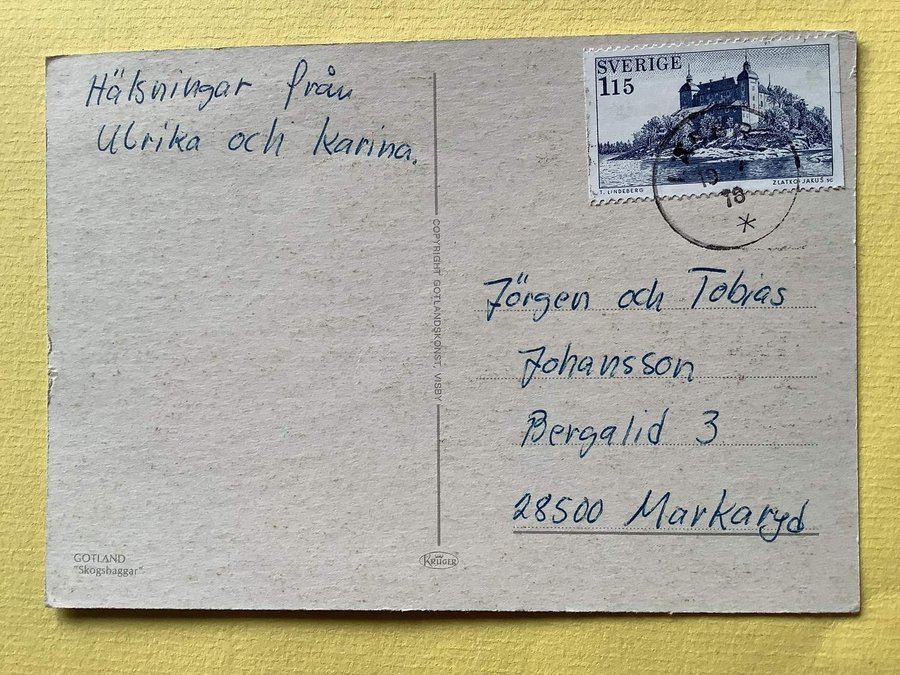 Hälsningar från
Ulrika och Karina.
SVERIGE
115
T. LINDEBERG
ZLATKO JAKUŠ SC
78
COPYRIGHT GOTLANDSKONST, VISBY
Jörgen och Tobias
Johansson
Bergalid 3
28500 Markaryd
GOTLAND
"Skogsbaggar"
KRÜGER